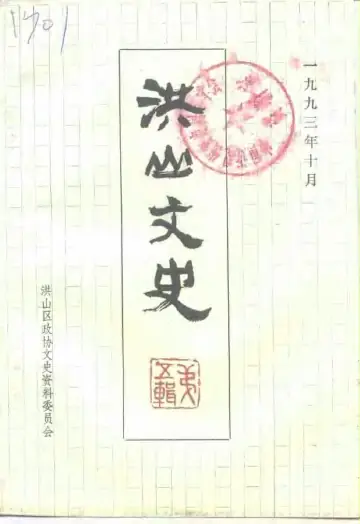 一九九三年十月
洪山文史
第五辑
洪山区政协文史资料委员会